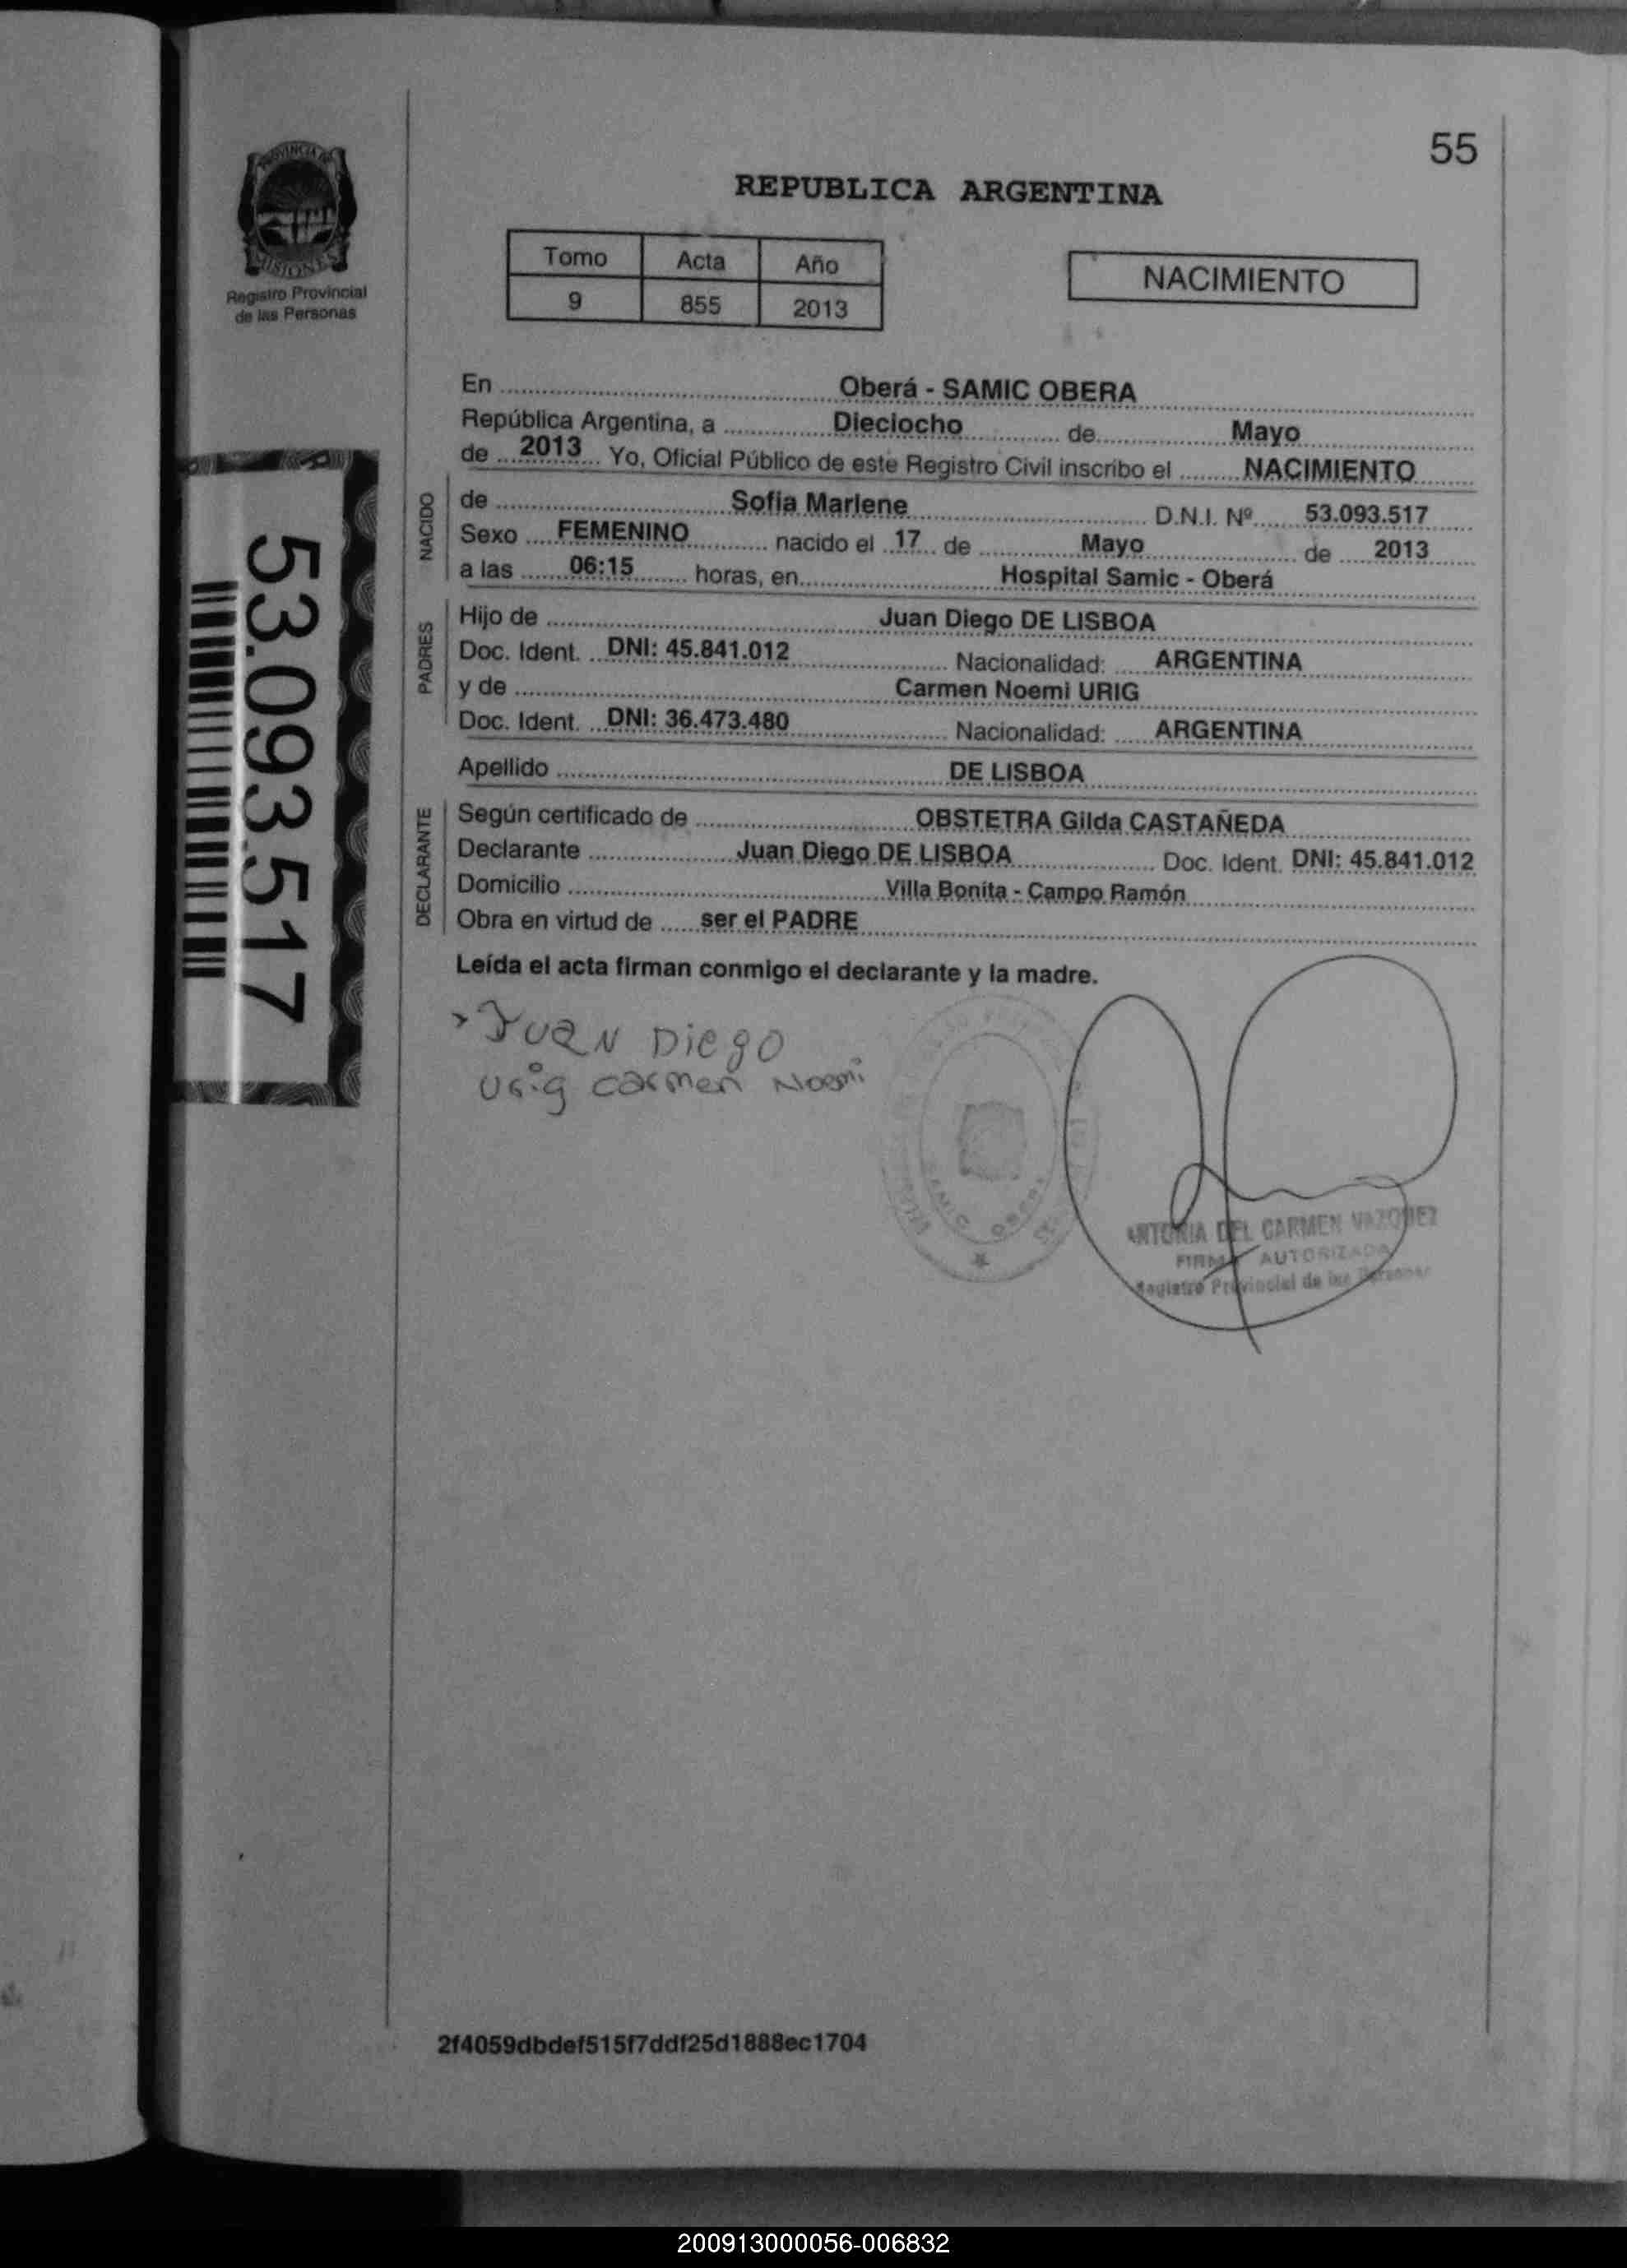 55
PROVINCIA DE
MISIONES
Registro Provincial
de las Personas
REPUBLICA ARGENTINA
Tomo Acta Año
9 855 2013
NACIMIENTO
En Oberá - SAMIC OBERA
República Argentina, a Dieciocho de Mayo
de 2013 Yo, Oficial Público de este Registro Civil inscribo el NACIMIENTO
NACIDO
de Sofia Marlene D.N.I. Nº 53.093.517
Sexo FEMENINO nacido el 17 de Mayo de 2013
a las 06:15 horas, en Hospital Samic - Oberá
PADRES
Hijo de Juan Diego DE LISBOA
Doc. Ident. DNI: 45.841.012 Nacionalidad: ARGENTINA
y de Carmen Noemi URIG
Doc. Ident. DNI: 36.473.480 Nacionalidad: ARGENTINA
Apellido DE LISBOA
DECLARANTE
Según certificado de OBSTETRA Gilda CASTAÑEDA
Declarante Juan Diego DE LISBOA Doc. Ident. DNI: 45.841.012
Domicilio Villa Bonita - Campo Ramón
Obra en virtud de ser el PADRE
Leída el acta firman conmigo el declarante y la madre.
53.093.517
Juan Diego
Urig Carmen Noemi
SAMIC OBERA
ANTONIA DEL CARMEN VAZQUEZ
FIRMA AUTORIZADA
Registro Provincial de las Personas
2f4059dbdef515f7ddf25d1888ec1704
200913000056-006832